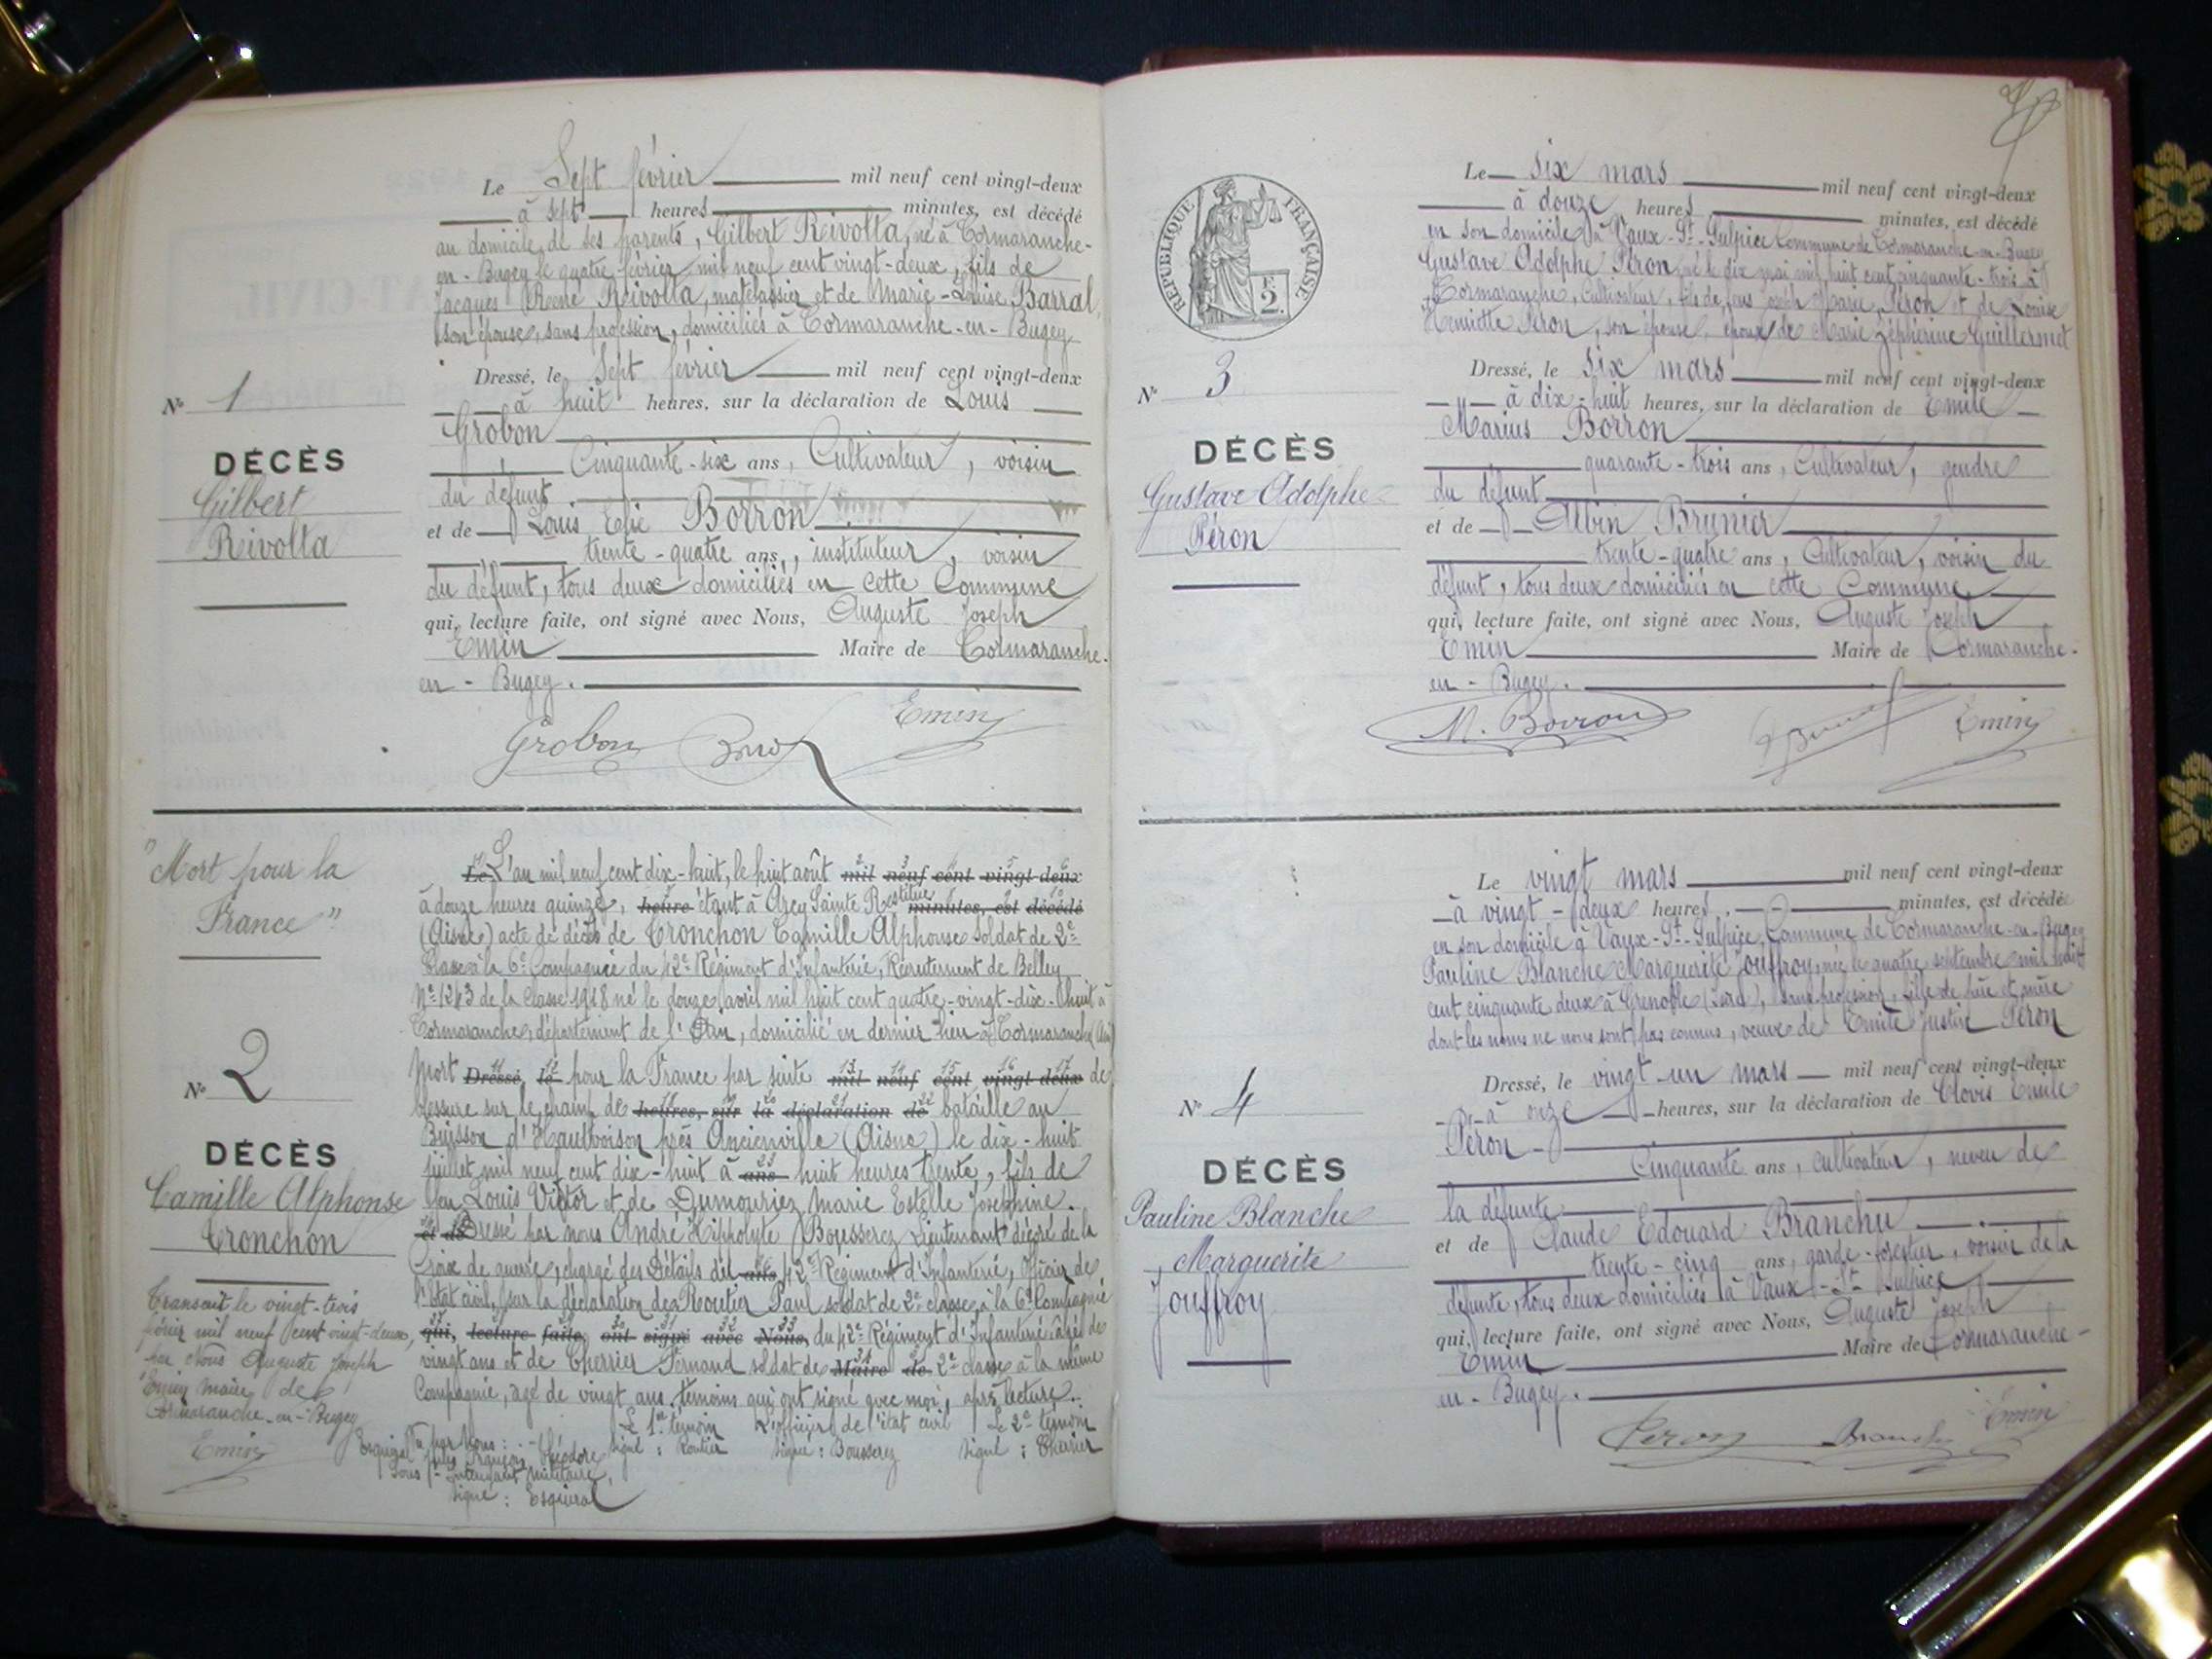 Le Sept février mil neuf cent vingt-deux
à sept heures minutes, est décédé
au domicile de ses parents, Gilbert Rivolta, né à Cormaranche-
en-Bugey le quatre février mil neuf cent vingt-deux, fils de
Jacques René Rivolta, matelassier et de Marie-Louise Barral,
son épouse, sans profession, domiciliés à Cormaranche-en-Bugey
Dressé, le Sept février mil neuf cent vingt-deux
à huit heures, sur la déclaration de Louis
Grobon
Cinquante-six ans, Cultivateur, voisin
du défunt.
et de Louis Elie Borron
trente-quatre ans, instituteur, voisin
du défunt, tous deux domiciliés en cette Commune
qui, lecture faite, ont signé avec Nous, Auguste Joseph
Emin Maire de Cormaranche-
en-Bugey.
Grobon Emin
N° 1
DÉCÈS
Gilbert
Rivolta
"Mort pour la
France"
N° 2
DÉCÈS
Camille Alphonse
Tronchon
Transcrit le vingt-trois
février mil neuf cent vingt-deux,
par Nous Auguste Joseph
Emin maire de
Cormaranche-en-Bugey
Emin
Le L'an mil neuf cent dix-huit, le huit août mil neuf cent vingt-deux
à douze heures quinze, heure étant à Arcy Sainte Restitue minutes, est décédé
(Aisne) acte de décès de Tronchon Camille Alphonse soldat de 2e
Classe à la 6e Compagnie du 42e Régiment d'Infanterie, Recrutement de Belley
N° 1243 de la classe 1918 né le douze avril mil huit cent quatre-vingt-dix-huit à
Cormaranche, département de l'Ain, domicilié en dernier lieu à Cormaranche (Ain)
Mort Dressé, le pour la France par suite mil neuf cent vingt-deux de
blessure sur le champ de heures, sur la déclaration de bataille au
Buisson d'Hautvoison près Ancienville (Aisne) le dix-huit
juillet mil neuf cent dix-huit à ans huit heures trente, fils de
feu Louis Victor et de Dumouriez Marie Estelle Josephine.
et de Dressé par nous André Hippolyte Bousserez Lieutenant décoré de la
Croix de guerre, chargé des Détails du ans 42e Régiment d'Infanterie, Officier de
l'état civil, sur la déclaration de Routier Paul soldat de 2e classe, à la 6e Compagnie
qui, lecture faite, ont signé avec Nous, du 42e Régiment d'Infanterie âgé de
vingt ans et de Cherrier Fernand soldat de Maire de 2e classe à la même
Compagnie, âgé de vingt ans, témoins qui ont signé avec moi, après lecture.
Le 1er témoin L'officier de l'état civil Le 2e témoin
signé : Routier signé : Bousserez signé : Cherrier
par Nous : Théodore
Sous-Intendant Militaire,
signé :
RÉPUBLIQUE FRANÇAISE
2 F.
N° 3
DÉCÈS
Gustave Adolphe
Péron
Le six mars mil neuf cent vingt-deux
à douze heures minutes, est décédé
en son domicile à Vaux-St-Sulpice Commune de Cormaranche-en-Bugey
Gustave Adolphe Péron, né le dix mai mil huit cent cinquante-trois à
Cormaranche, Cultivateur, fils de feus Joseph Marie Péron et de Louise
Henriette Péron, son épouse, époux de Marie Zéphirine Guillermet
Dressé, le Six mars mil neuf cent vingt-deux
à dix-huit heures, sur la déclaration de Emile
Marius Borron
quarante-trois ans, Cultivateur, gendre
du défunt
et de Albin Brunier
trente-quatre ans, Cultivateur, voisin du
défunt, tous deux domiciliés en cette Commune
qui, lecture faite, ont signé avec Nous, Auguste Joseph
Emin Maire de Cormaranche-
en-Bugey.
M. Borron Emin
N° 4
DÉCÈS
Pauline Blanche
Marguerite
Jouffroy
Le vingt mars mil neuf cent vingt-deux
à vingt-deux heures, minutes, est décédé
en son domicile à Vaux-St-Sulpice, Commune de Cormaranche-en-Bugey
Pauline Blanche Marguerite Jouffroy, née le quatre septembre mil huit
cent cinquante deux à Grenoble (Isère), sans profession, fille de père et mère
dont les noms ne nous sont pas connus, veuve de Emile Justin Péron
Dressé, le vingt-un mars mil neuf cent vingt-deux
à onze heures, sur la déclaration de Clovis Emile
Péron
Cinquante ans, cultivateur, neveu de
la défunte
et de Claude Edouard Branchu
trente-cinq ans, garde-forestier, voisin de la
défunte, tous deux domiciliés à Vaux-St-Sulpice
qui, lecture faite, ont signé avec Nous, Auguste Joseph
Emin Maire de Cormaranche-
en-Bugey.
Peron Branchu Emin